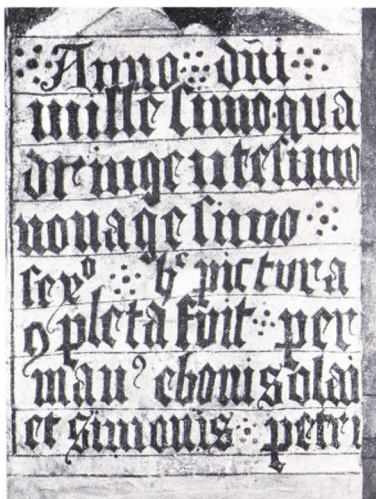 Anno dn̄i
millesimo qua
dringentesimo
nonagesimo
sexº hᶜ pictura
ꝯpleta fuit per
manꝰ ebonis olai
et simonis petri